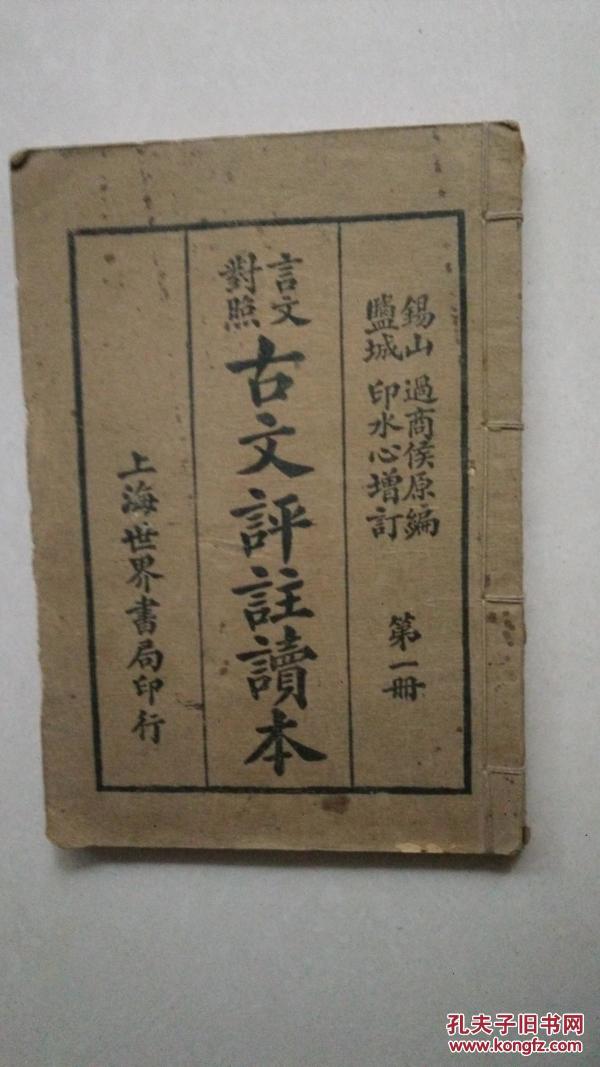 錫山 過商侯原編
鹽城 印水心增訂
第一冊
言文
對照
古文評註讀本
上海世界書局印行
孔夫子旧书网
www.kongfz.com